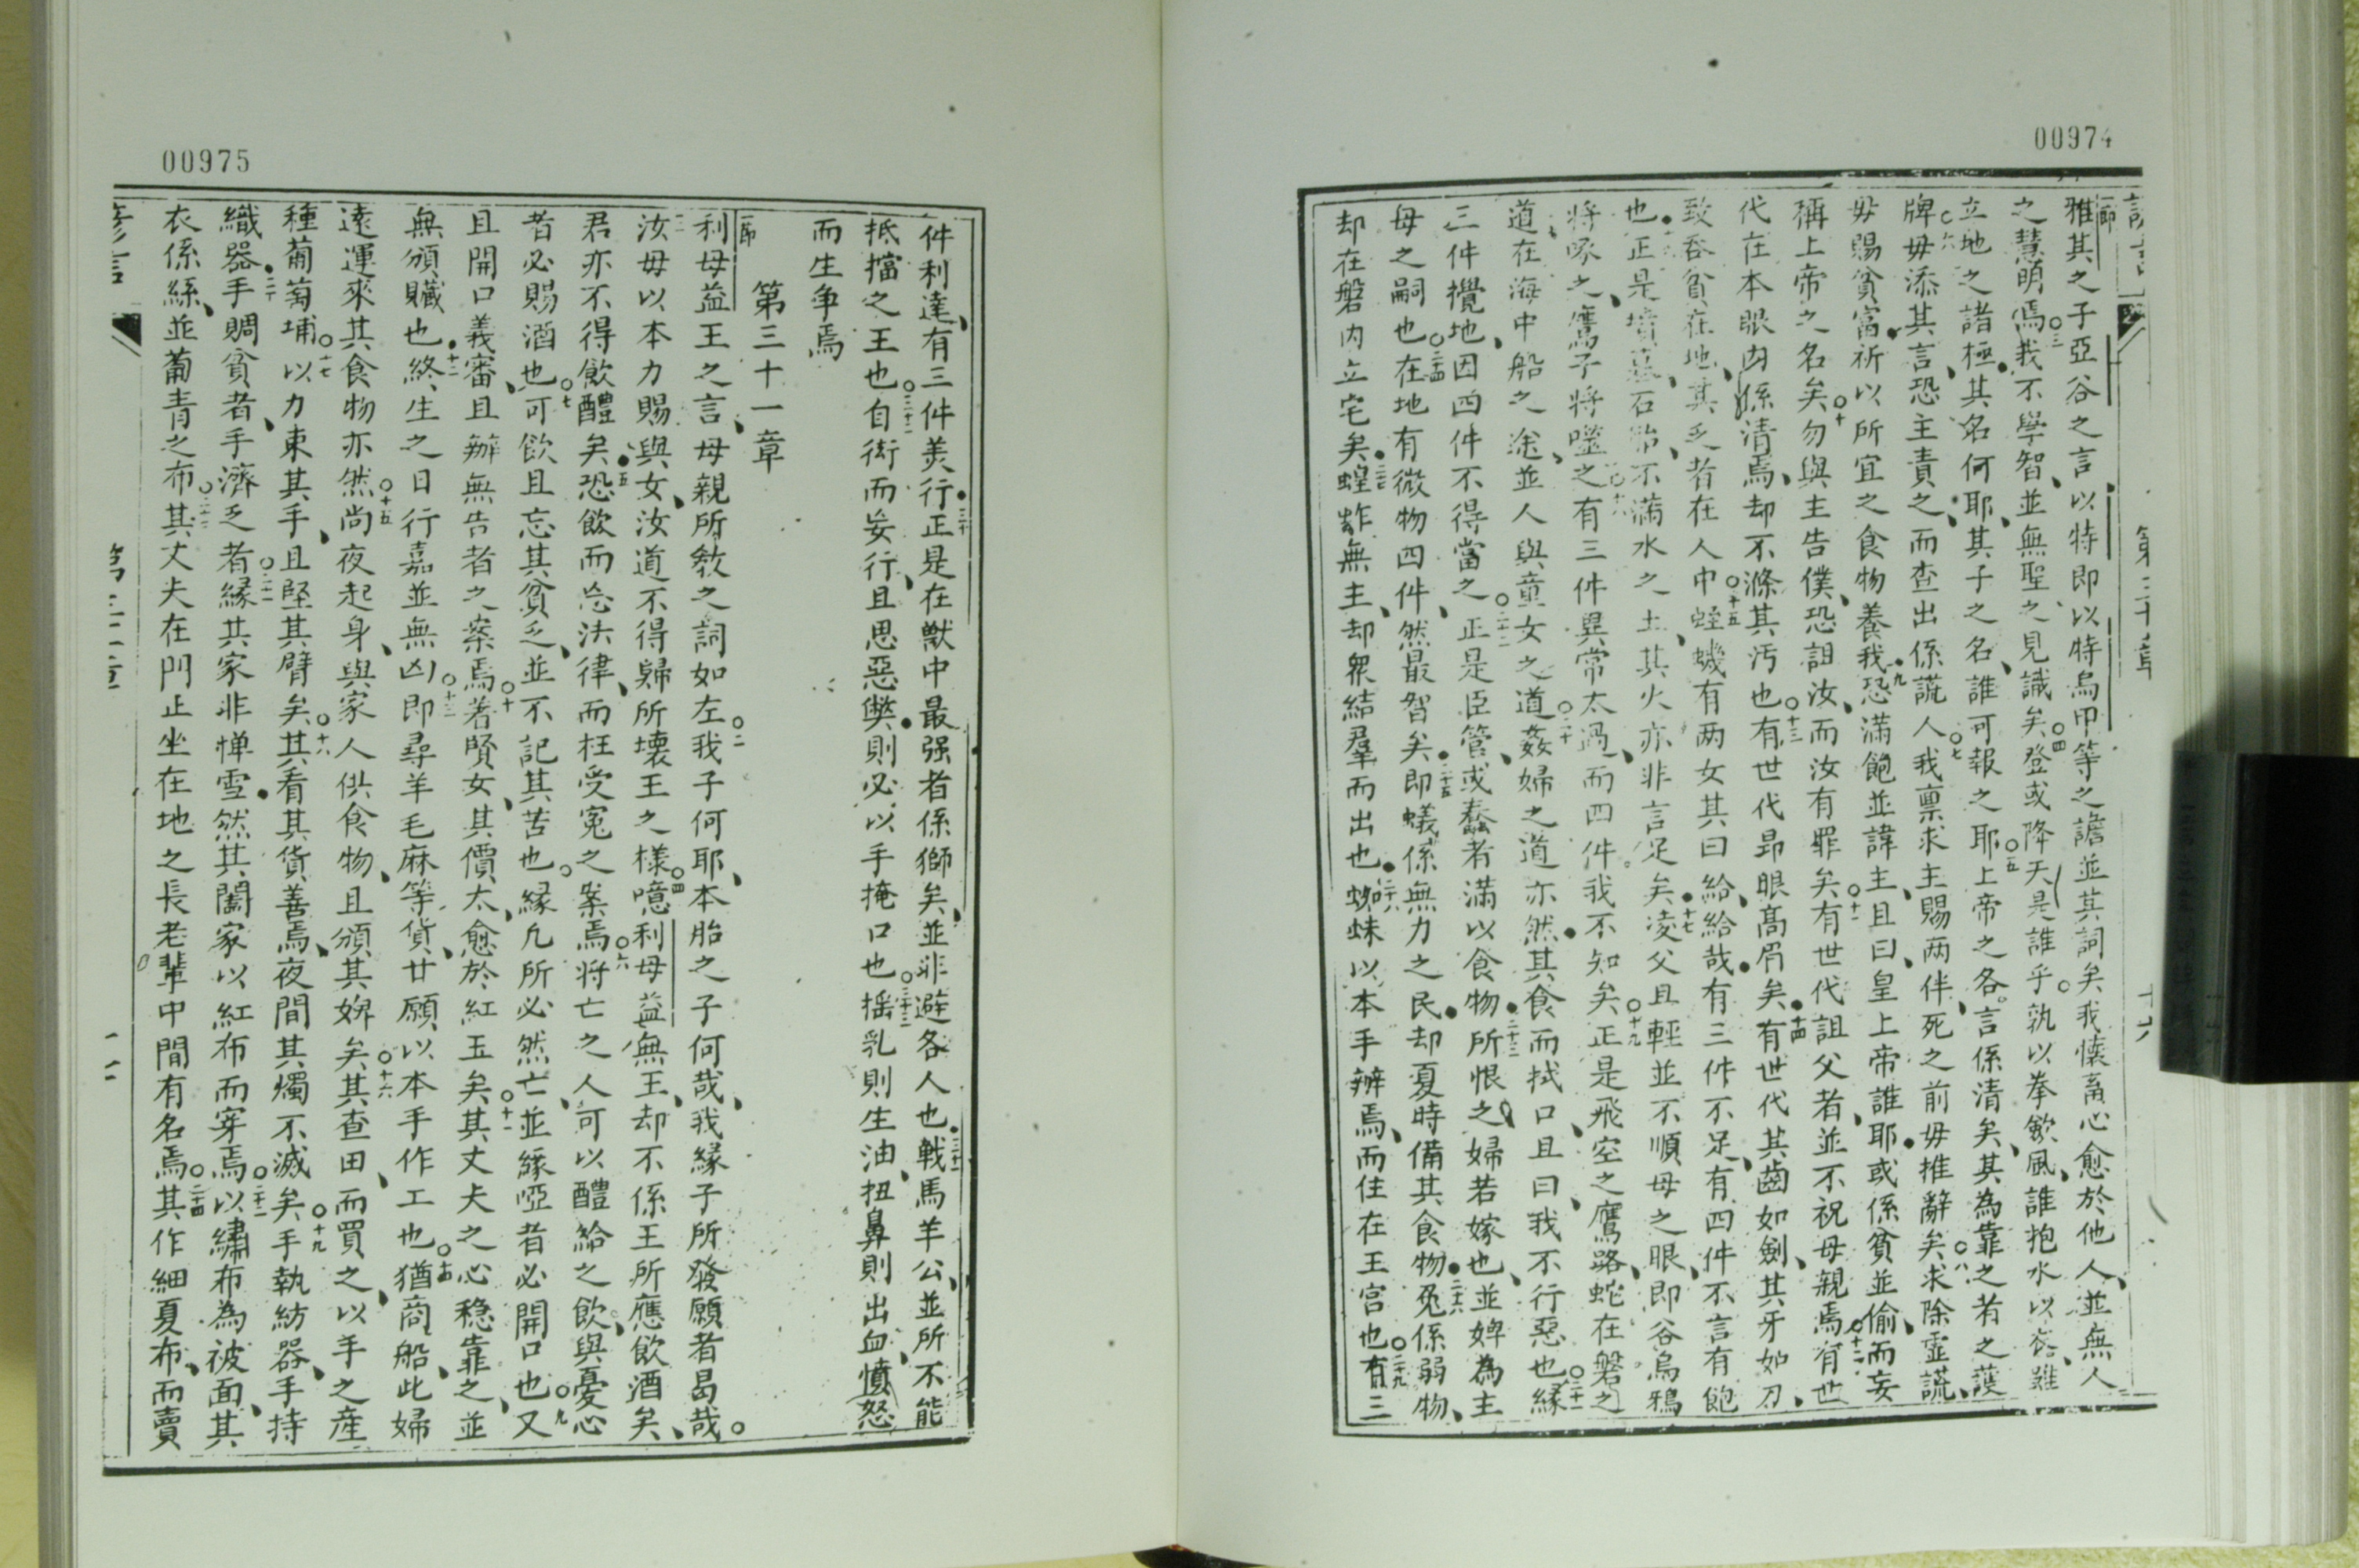 00974
第三十章
十六
一節
雅其之子亞谷之言以特即以特烏甲等之譫並其詞矣我懷畜心愈於他人並無人
之慧萌焉○三我不學智並無聖之見識矣○四登或降天是誰乎孰以拳歛風誰抱水以衣誰
立地之諸極其名何耶其子之名誰可報之耶○五上帝之各言係清矣其為靠之者之護
牌○六毋添其言恐主責之而查出係謊人○七我稟求主賜两件死之前毋推辭矣○八求除虛謊
毋賜貧富祈以所宜之食物養我九恐滿飽並諱主且曰皇上帝誰耶或係貧並偷而妄
稱上帝之名矣○十勿與主告僕恐詛汝而汝有罪矣○十一有世代詛父者並不祝母親焉○十二有世
代在本眼內係清焉却不滌其汚也○十三有世代昻眼高眉矣十四有世代其齒如劍其牙如刀
致吞貧在地其乏者在人中○十五蛭蟣有两女其曰給給哉有三件不足有四件不言有飽
也十六正是墳墓石胎不滿水之土其火亦非言足矣十七凌父且輕並不順母之眼即谷烏鴉
將啄之鷹子將噬之○十八有三件異常太過而四件我不知矣○十九正是飛空之鷹路蛇在磐之
道在海中船之途並人與童女之道○二十姦婦之道亦然其食而拭口且曰我不行惡也○二十一緣
三件攪地因四件不得當之○二十二正是臣管或蠢者滿以食物二十三所恨之婦若嫁也並婢為主
母之嗣也○二十四在地有微物四件然最智矣二十五即蟻係無力之民却夏時備其食物二十六兔係弱物
却在磐內立宅矣二十七蝗蚱無主却衆結羣而出也二十八蜘蛛以本手辦焉而住在王宫也○二十九有三
00975
件利達有三件美行三十正是在獸中最强者係獅矣並非避各人也三十一戦馬羊公並所不能
抵擋之王也○三十二自衒而妄行且思惡獘則必以手掩口也○三十三搖乳則生油扭鼻則出血憤怒
而生争焉
第三十一章
一節
利母益王之言母親所敎之詞如左○二我子何耶本胎之子何哉我緣子所發願者曷哉
三汝毋以本力賜與女汝道不得歸所壊王之樣○四噫利母益無王却不係王所應飲酒矣
君亦不得歛醴矣五恐飲而忘法律而枉受寃之案焉○六將亡之人可以醴給之飲與憂心
者必賜酒也○七可飲且忘其貧乏並不記其苦也○緣凢所必然亡並緣啞者必開口也○九又
且開口義審且辦無告者之案焉○十若賢女其價太愈於紅玉矣○十一其丈夫之心穏靠之並
無頒贜也十二終生之日行嘉並無凶○十三即尋羊毛麻等貨廿願以本手作工也○十四猶商船此婦
遠運來其食物亦然○十五尚夜起身與家人供食物且頒其婢矣○十六其查田而買之以手之産
種葡萄埔○十七以力束其手且堅其臂矣○十八其看其貨善焉夜間其燭不滅矣○十九手執紡器手持
織器二十手賙貧者手濟乏者○二十一緣其家非惮雪然其闔家以紅布而穿焉○二十二以繡布為被面其
衣係絲並葡青之布○二十三其丈夫在門止坐在地之長老輩中間有名焉○二十四其作細夏布而賣
箴言
第三十一章